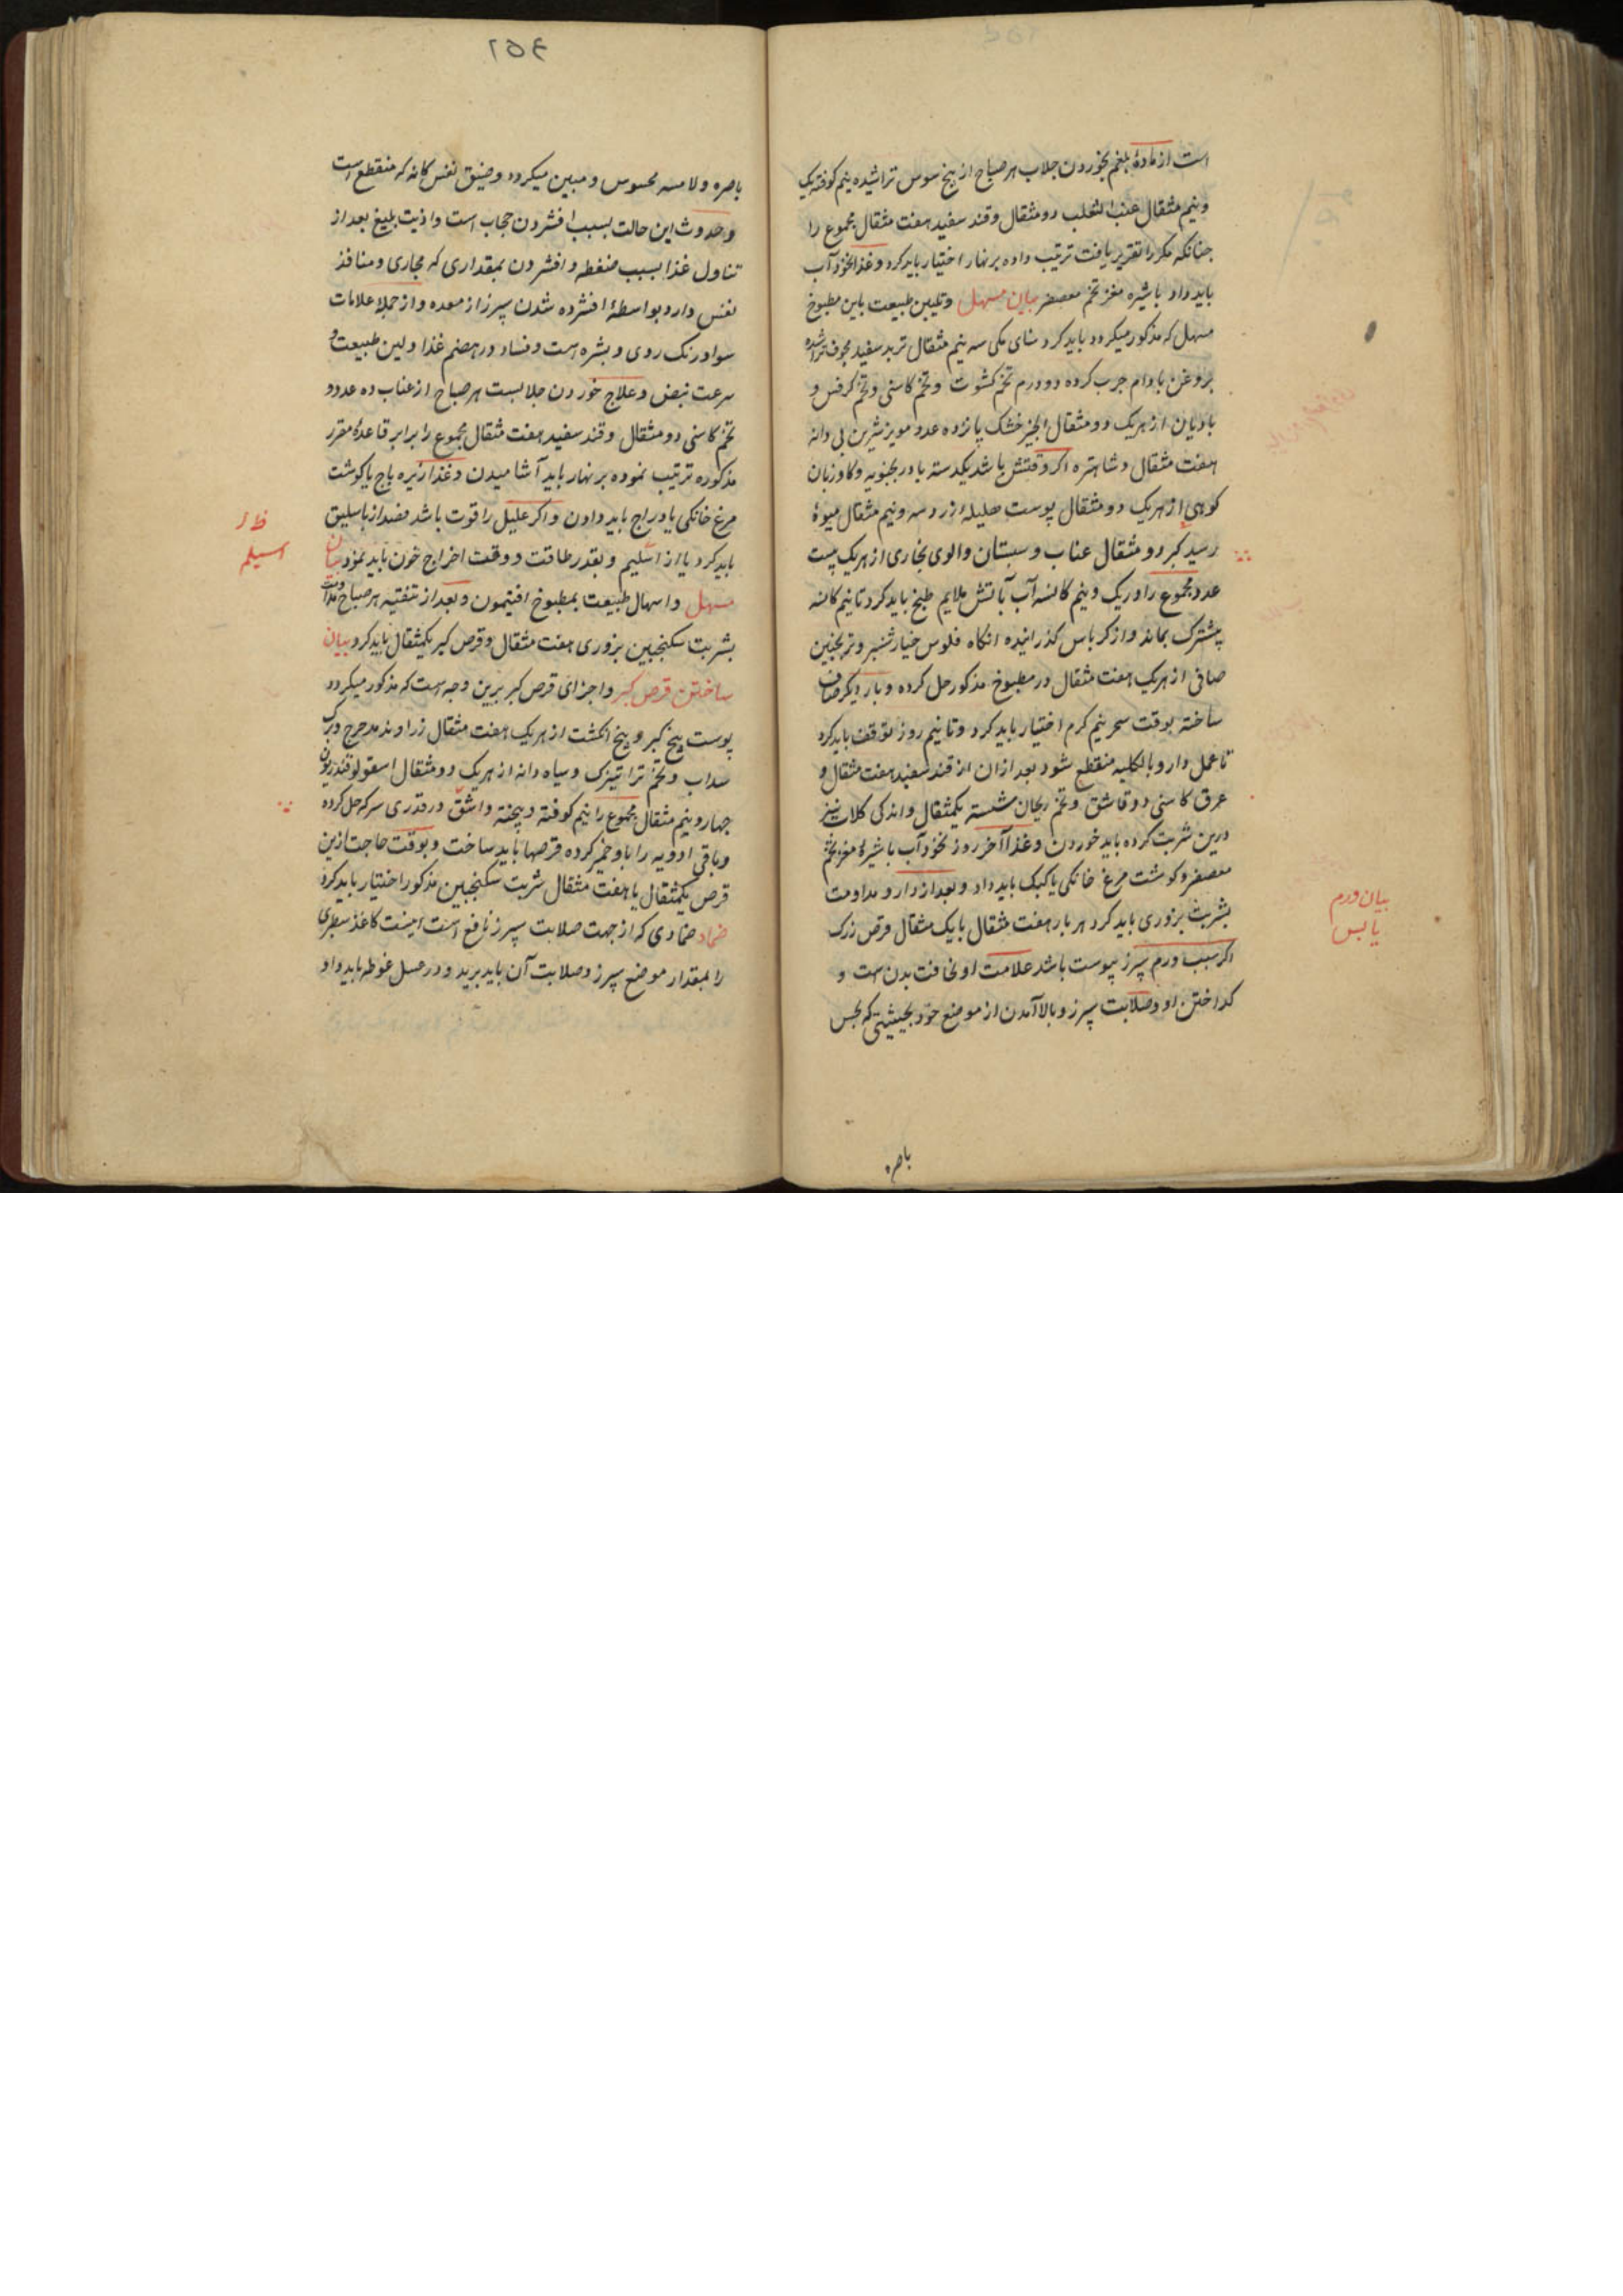 است از مادهٔ بلغم بخوردن جلاب هر صباح از بیخ سوس تراشیده نیم کوفته یک
ونیم مثقال عنب الثعلب دو مثقال وقند سفید هفت مثقال مجموع را
جنانکه مکررا تقریر یافت ترتیب داده بر نهار اختیار باید کرد و غذا نخود آب
باید داد با شیره مغز تخم معصفر بیان مسهل وتلیین طبیعت باین مطبوخ
مسهل که مذکور میکردد باید کرد سنای مکی سه نیم مثقال تربد سفید مجوف تراشیده
بروغن بادام جرب کرده دو درم تخم کشوث وتخم کاسنی وتخم کرفس و
بادیان از هریک دو مثقال انجیر خشک پانزده عدد مویز شیرین بی دانه
هفت مثقال و شاهتره اکر وقتش باشد یکدسته بادرنجبویه وکاوزبان
کوهی از هریک دو مثقال پوست هلیله زرد سه ونیم مثقال میوهٔ
رسید کبر دو مثقال عناب و سبستان والوی بخاری از هریک بیست
عدد مجموع را در یک ونیم کاسه آب بآتش ملایم طبخ باید کرد تا نیم کاسه
پیشترک بماند واز کرباس کذرانیده انکاه فلوس خیارشنبر وترنجبین
صافی از هریک هفت مثقال در مطبوخ مذکور حل کرده وبار دیکر صاف
ساخته بوقت سحر نیم کرم اختیار باید کرد وتا نیم روز توقف باید کرد
تا عمل دارو بالکلیه منقطع شود بعد ازان از قند سفید هفت مثقال و
عرق کاسنی دو قاشق وتخم ریحان شسته یکمثقال واندکی کلاب نیز
درین شربت کرده باید خوردن وغذا آخر روز نخود آب با شیرهٔ مغز تخم
معصفر وکوشت مرغ خانکی یا کبک باید داد وبعد از دارو مداومت
بشربت بزوری باید کرد هر بار هفت مثقال با یک مثقال قرص زرک
اکر سبب ورم سپرز یبوست باشد علامت او نحافت بدن ست و
کداختن او وصلابت سپرز وبالا آمدن از موضع خود بحیثیتی که بحس
بیان ورم
یابس
باصره
۲۵۴
باصره ولامسه محسوس ومبین میکردد وضیق نفس کانه که منقطع است
وحدوث این حالت بسبب افشردن حجاب است واذیت بلیغ بعد از
تناول غذا بسبب ضغطه وافشردن بمقداری که مجاری ومنافذ
نفس دارد بواسطهٔ افشرده شدن سپرز از معده واز جملهٔ علامات
سواد رنک روی وبشره است وفساد در هضم غذا ولین طبیعت و
سرعت نبض وعلاج خوردن جلابست هر صباح از عناب ده عدد و
تخم کاسنی دو مثقال وقند سفید هفت مثقال مجموع را برابر قاعدهٔ مقرر
مذکوره ترتیب نموده بر نهار باید آشامیدن وغذا زیره باج با کوشت
مرغ خانکی یا دراج باید دادن واکر علیل را قوت باشد فصد از باسلیق
باید کرد یا از اسلیم وبقدر طاقت ووقت اخراج خون باید نمود بیان
مسهل واسهال طبیعت بمطبوخ افتیمون وبعد از تنقیه هر صباح مداومت
بشربت سکنجبین بزوری هفت مثقال وقرص کبر یکمثقال باید کرد بیان
ساختن قرص کبر واجزای قرص کبر برین وجه است که مذکور میکردد
پوست بیخ کبر وپنج انکشت از هریک هفت مثقال زراوند مدحرج وبرک
سداب وتخم تراتیزک وسیاه دانه از هریک دو مثقال اسقولوقندریون
جهار ونیم مثقال مجموع را نیم کوفته وبیخته واشق در قدری سرکه حل کرده
وباقی ادویه را باو خمیر کرده قرصها باید ساخت وبوقت حاجت ازین
قرص یکمثقال با هفت مثقال شربت سکنجبین مذکور اختیار باید کرد
ضماد ضمادی که از جهت صلابت سپرز نافع است اینست کاغذ سطبری
را بمقدار موضع سپرز وصلابت آن باید برید ودر عسل غوطه باید داد
ظ از
اسیلم